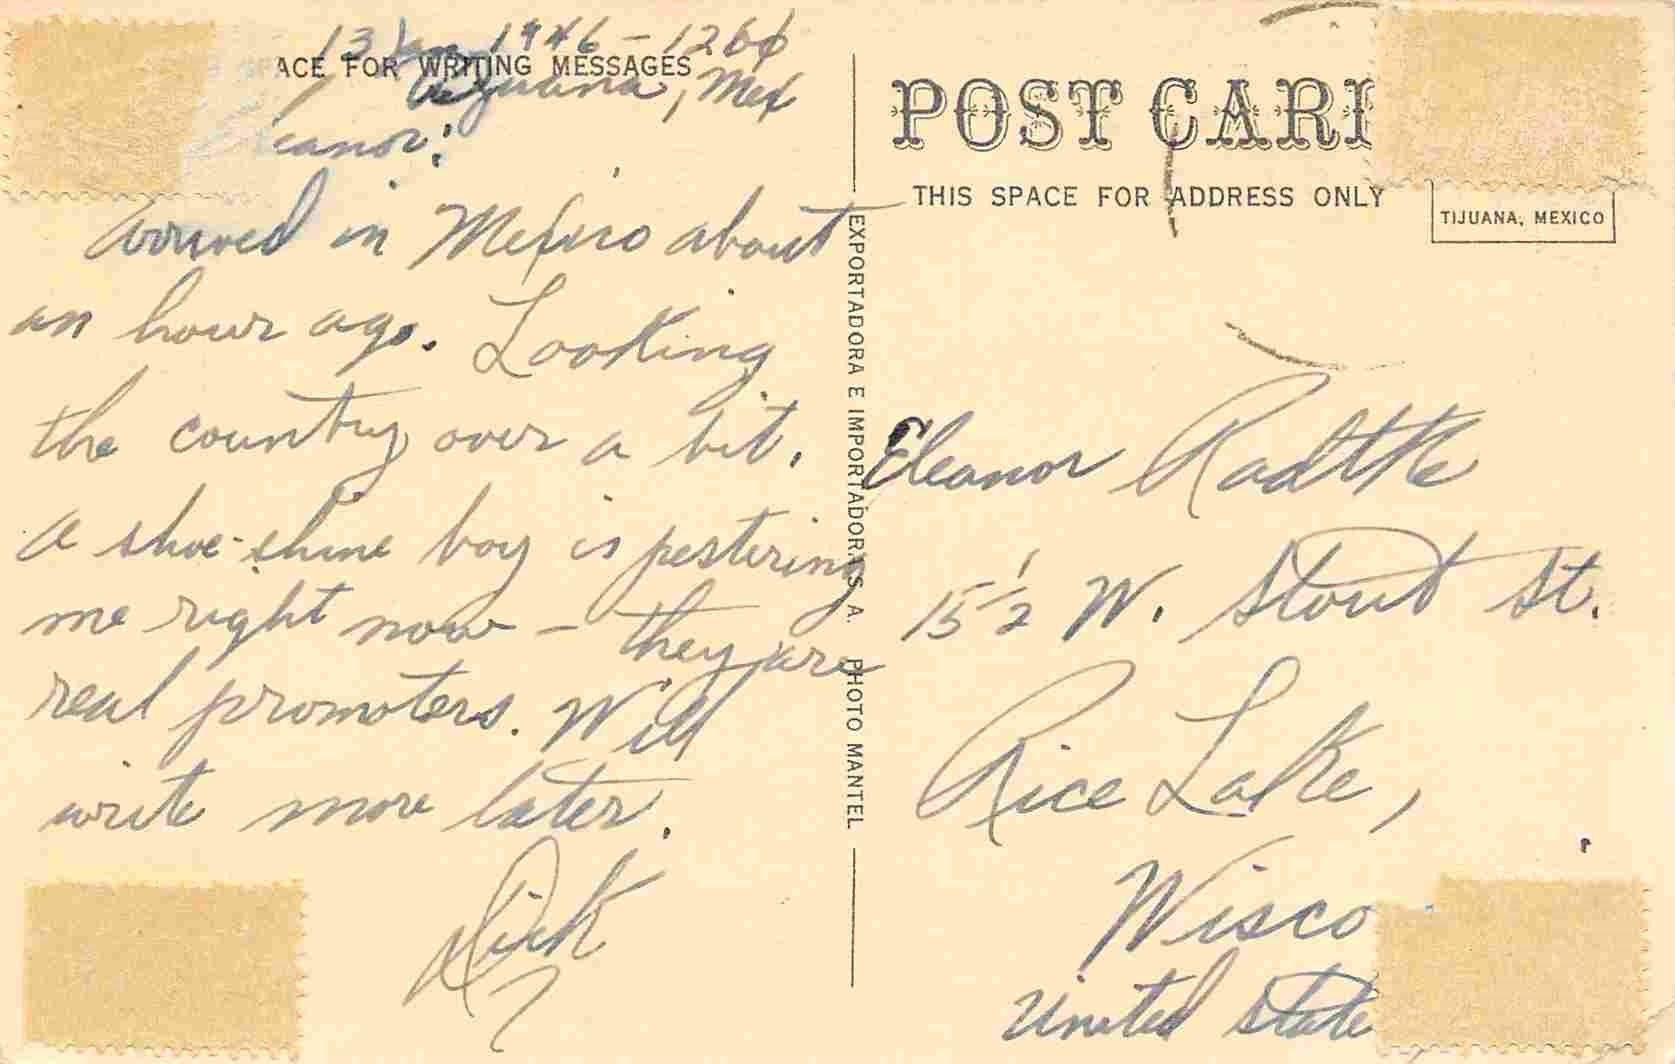 13 Jan 1946 - 1200
ACE FOR WRITING MESSAGES
Tijuana, Mex
eanor:
Arrived in Mexico about
an hour ago. Looking
the country over a bit.
A shoe-shine boy is pestering
me right now - they are
real promoters. Will
write more later.
Dick
EXPORTADORA E IMPORTADORA S. A. PHOTO MANTEL
POST CARD
THIS SPACE FOR ADDRESS ONLY
TIJUANA, MEXICO
Eleanor Radtke
15 1/2 W. Stout St.
Rice Lake,
Wisco
United State